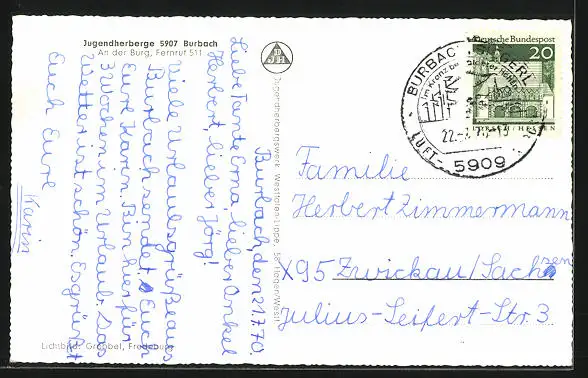 Jugendherberge 5907 Burbach
An der Burg, Fernruf 511
Burbach, den 21.7.70.
Liebe Tante Erna, lieber Onkel
Herbert, lieber Jörg!
Viele Urlaubsgrüße aus
Burbach sendet Euch
Eure Karin. Bin hier für
3 Wochen im Urlaub. Das
Wetter ist schön. Es grüßt
Euch Eure
Karin
Lichtbild: Grobbel, Fredeburg
Jugendherbergswerk Westfalen-Lippe, 58 Hagen/Westf.
DJH
Deutsche Bundespost
20
LORSCH/HESSEN
BURBACH
LUFT-
5909
Familie
Herbert Zimmermann
X95 Zwickau/Sachsen
Julius-Seifert-Str. 3